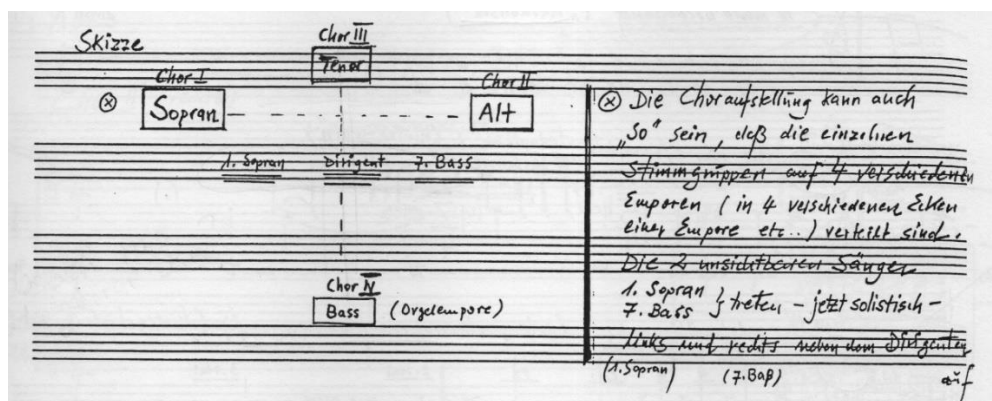 Skizze
Chor III
Tenor
Chor I
Chor II
⊗ Sopran
Alt
1. Sopran Dirigent 7. Bass
Chor IV
Bass (Orgelempore)
⊗ Die Choraufstellung kann auch
„So" sein, daß die einzelnen
Stimmgruppen auf 4 verschiedenen
Emporen (in 4 verschiedenen Ecken
einer Empore etc..) verteilt sind.
Die 2 unsichtbaren Sänger
1. Sopran
7. Bass } treten – jetzt solistisch –
links und rechts neben dem Dirigenten
(1. Sopran) (7. Baß) auf